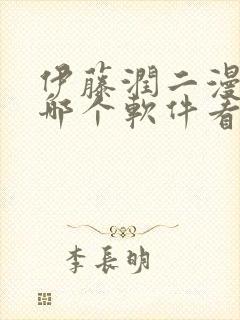 伊藤潤二漫
哪个軟件看
李長明